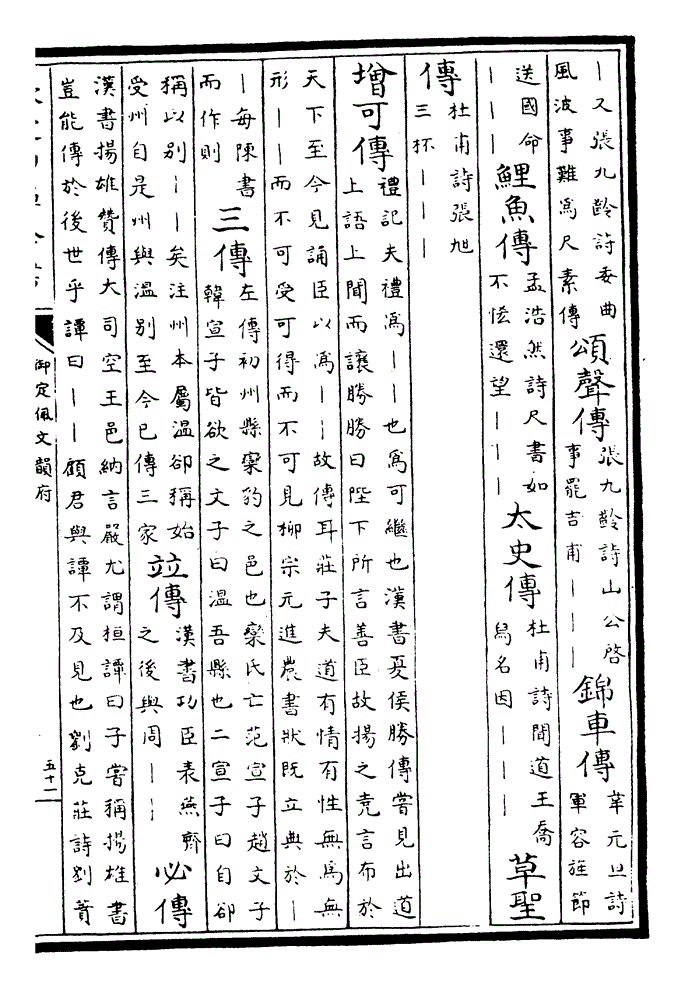 ｜又張九齡詩委曲
風波事難爲尺素傳
頌聲傳
張九齡詩山公啓
事罷吉甫｜｜｜
錦車傳
莘元旦詩
軍容旌節
送國命
｜｜｜
鯉魚傳
孟浩然詩尺書如
不恡還望｜｜｜
太史傳
杜甫詩聞道王喬
舄名因｜｜｜
草聖
傳
杜甫詩張旭
三杯｜｜｜
增可傳
禮記夫禮爲｜｜也爲可繼也漢書夏侯勝傳嘗見出道
上語上聞而讓勝勝曰陛下所言善臣故揚之堯言布於
天下至今見誦臣以爲｜｜故傳耳莊子夫道有情有性無爲無
形｜｜而不可受可得而不可見柳宗元進農書狀既立典於｜
｜每陳書
而作則
三傳
左傳初州縣欒豹之邑也欒氏亡范宣子趙文子
韓宣子皆欲之文子曰溫吾縣也二宣子曰自郤
稱以別｜｜矣注州本屬溫郤稱始
受州自是州與溫別至今已傳三家
竝傳
漢書功臣表燕齊
之後與周｜｜
必傳
漢書揚雄贊傳大司空王邑納言嚴尤謂桓譚曰子嘗稱揚雄書
豈能傳於後世乎譚曰｜｜顧君與譚不及見也劉克莊詩劉蕡
御定佩文韻府
五十二